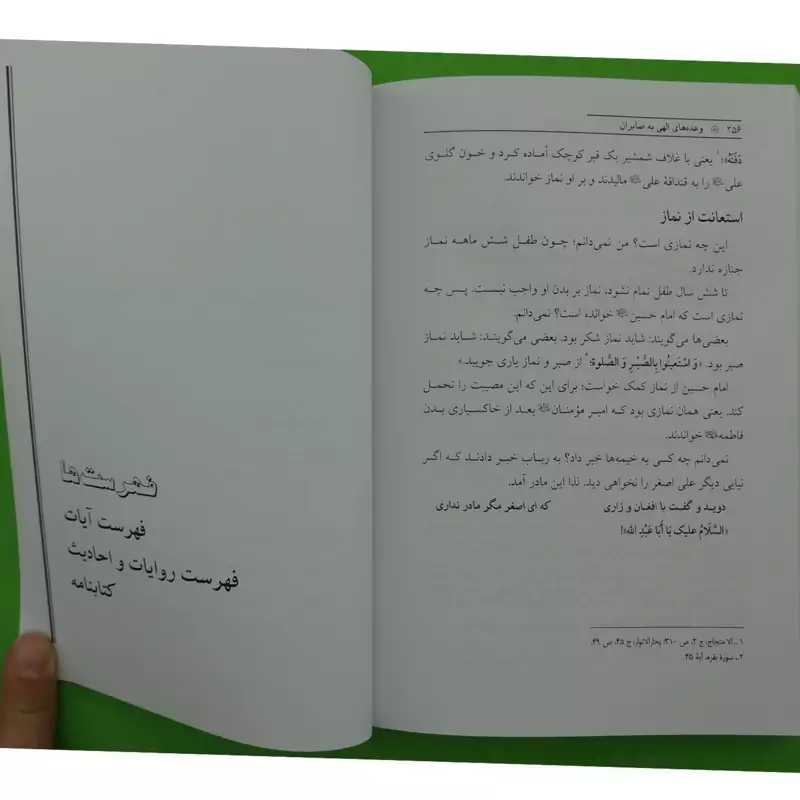 ۳۵۶ وعده‌های الهی به صابران
دَفَنَهُ»؛ ۱ یعنی با غلاف شمشیر یک قبر کوچک آماده کرد و خون گلوی
علی را به قنداقهٔ علی مالیدند و بر او نماز خواندند.
استعانت از نماز
این چه نمازی است؟ من نمی‌دانم؛ چون طفل شش ماهه نماز
جنازه ندارد.
تا شش سال طفل تمام نشود، نماز بر بدن او واجب نیست. پس چه
نمازی است که امام حسین خوانده است؟ نمی‌دانم.
بعضی‌ها می‌گویند: شاید نماز شکر بود. بعضی می‌گویند: شاید نماز
صبر بود. «وَ اسْتَعینُوا بِالصَّبْرِ وَ الصَّلوة؛ ۲ از صبر و نماز یاری جویید.»
امام حسین از نماز کمک خواست؛ برای این که این مصیبت را تحمل
کند. یعنی همان نمازی بود که امیر مؤمنان بعد از خاکسپاری بدن
فاطمه خواندند.
نمی‌دانم چه کسی به خیمه‌ها خبر داد؟ به رباب خبر دادند که اگر
نیایی دیگر علی اصغر را نخواهی دید. لذا این مادر آمد.
دوید و گفت با افغان و زاری که ای اصغر مگر مادر نداری
«السَّلَامُ علیک یَا أَبَا عَبْدِ الله»!
۱ ـ الاحتجاج، ج ۲، ص ۳۱۰؛ بحارالانوار، ج ۴۵، ص ۴۹.
۲ ـ سورهٔ بقره، آیهٔ ۴۵.
فهرست‌ها
فهرست آیات
فهرست روایات و احادیث
کتابنامه